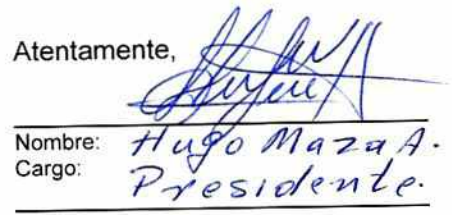 Atentamente,
Nombre: Hugo Maza A.
Cargo: Presidente.